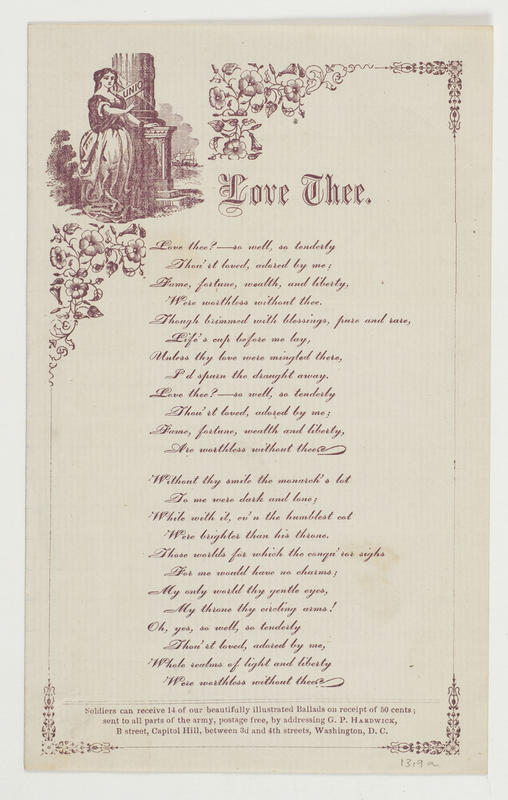 UNION
Love Thee.
Love thee?—so well, so tenderly
Thou'rt loved, adored by me;
Fame, fortune, wealth, and liberty,
Were worthless without thee.
Though brimmed with blessings, pure and rare,
Life's cup before me lay,
Unless thy love were mingled there,
I'd spurn the draught away.
Love thee?—so well, so tenderly
Thou'rt loved, adored by me;
Fame, fortune, wealth and liberty,
Are worthless without thee.
Without thy smile the monarch's lot
To me were dark and lone;
While with it, ev'n the humblest cot
Were brighter than his throne.
Those worlds for which the conqu'ror sighs
For me would have no charms;
My only world thy gentle eyes,
My throne thy circling arms!
Oh, yes, so well, so tenderly
Thou'rt loved, adored by me,
Whole realms of light and liberty
Were worthless without thee.
Soldiers can receive 14 of our beautifully illustrated Ballads on receipt of 50 cents;
sent to all parts of the army, postage free, by addressing G. P. HARDWICK,
B street, Capitol Hill, between 3d and 4th streets, Washington, D. C.
1319a